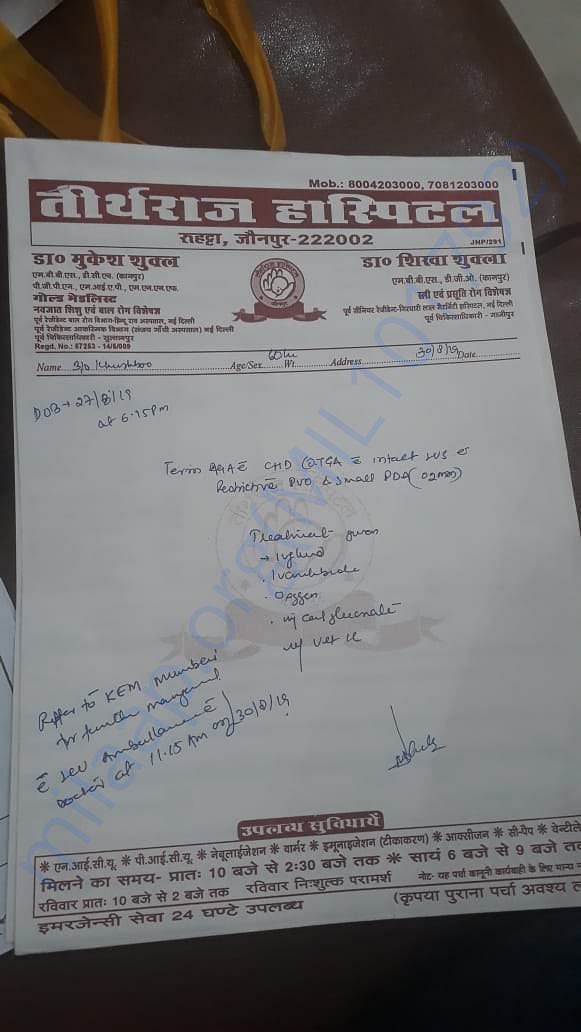 Mob.: 8004203000, 7081203000
तीर्थराज हास्पिटल
रुहट्टा, जौनपुर-222002
JNP/291
डा० मुकेश शुक्ल
एम.बी.बी.एस., डी.सी.एच. (कानपुर)
पी.जी.पी.एन., एम.आई.ए.पी., एम.एन.एन.एफ.
गोल्ड मेडलिस्ट
नवजात शिशु एवं बाल रोग विशेषज्ञ
पूर्व रेजीडेन्ट बाल रोग विभाग-हिन्दू राव अस्पताल, नई दिल्ली
पूर्व रेजीडेन्ट आकस्मिक विभाग (संजय गाँधी अस्पताल) नई दिल्ली
पूर्व चिकित्साधिकारी - सुल्तानपुर
Regd. No.: 57263 - 14/8/009
डा० शिखा शुक्ला
एम.बी.बी.एस., डी.जी.ओ. (कानपुर)
स्त्री एवं प्रसूति रोग विशेषज्ञ
पूर्व चिकित्साधिकारी - गाजीपुर
Name B/o Khushboo Age/Sex Wt. Address 30/8/19 Date
DOB → 27/8/19
at 6:15pm
Term AGA c̄ CHD (DTGA c̄ intact IVS c̄
Restrictive PVO & small PDA
Treatment given
→ Iv fluid
. Oxygen
. inj cal gluconate
inj Vit K
Reffer to KEM Mumbai
for further
c̄ ICU Ambullance c̄
Doctor at 11:15 AM on 30/8/19
उपलब्ध सुविधायें
❋ एन.आई.सी.यू. ❋ पी.आई.सी.यू. ❋ नेबूलाईजेशन ❋ वार्मर ❋ इम्यूनाइजेशन (टीकाकरण) ❋ आक्सीजन ❋ सी-पैप ❋
मिलने का समय- प्रातः 10 बजे से 2:30 बजे तक ❋ सायं 6 बजे से 9 बजे
रविवार प्रातः 10 बजे से 2 बजे तक रविवार निःशुल्क परामर्श
नोट- यह पर्चा कानूनी कार्यवाही के लिए मान्य
इमरजेन्सी सेवा 24 घण्टे उपलब्ध
(कृपया पुराना पर्चा अवश्य
milaap.org